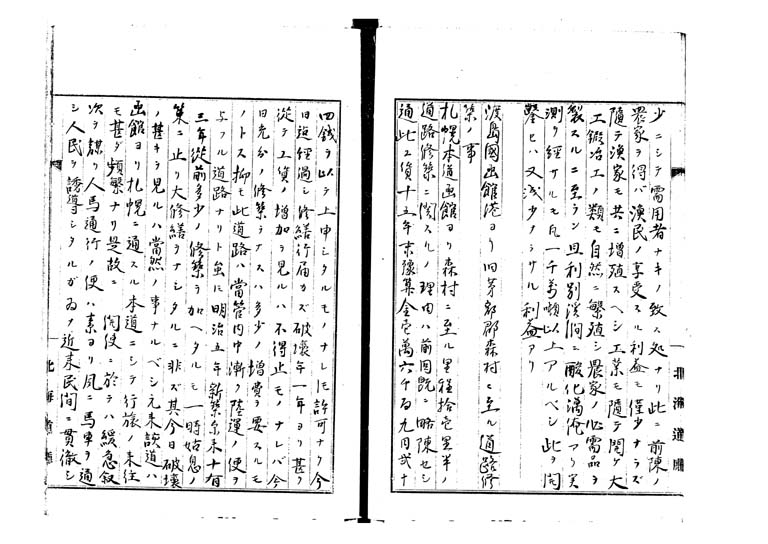 少ニシテ需用者ナキノ致ス処ナリ此ニ前陳ノ
農家ヲ得バ漁民ノ享受スル利益モ僅少ナラズ
随テ漁家モ共ニ増殖スヘシ工業モ随テ開ケ大
工鍛冶工ノ類モ自然ニ繁殖シ農家ノ必需品ヲ
製スルニ至ラン且利別渓間ニ酸化満俺アリ実
測ヲ経サルモ凡一千万噸以上アルベシ此ヲ開
鑿セハ又浅少ナラサル利益アリ
渡島國函館港ヨリ旧茅部郡森村ニ至ル道路修
築ノ事
札幌本道函館ヨリ森村ニ至ル里程拾壱里半ノ
道路修築ニ関スルノ理由ハ前回既ニ略陳セシ
通此工費十五年末豫算金壱萬六千百九円弐十
四銭ヲ以テ上申シタルモノナレモ許可ナク今
日迠経過シ修繕行届カズ破壊年一年ヨリ甚ク
従テ工費ノ増加ヲ見ルハ不得止モノナレバ今
日充分ノ修築ヲナスハ多少ノ増費ヲ要スルモ
ノトス抑モ此道路ハ當管内中漸ク陸運ノ便ヲ
与フル道路ナリト虽ニ明治五年新築爾来十有
三年従前多少ノ修築ヲ加ヘタルモ一時姑息ノ
策ニ止リ大修繕ヲナシタルニ非ズ其今日破壊
ノ甚キヲ見ルハ當然ノ事ナルベシ元来該道ハ
函館ヨリ札幌ニ通スル本道ニシテ行旅ノ来往
モ甚ダ頻繁ナリ是故ニ 開使ニ於テハ緩急叙
次ヲ謀リ人馬通行ノ便ハ素ヨリ夙ニ馬車ヲ通
シ人民ヲ誘導シタルガ為ノ近来民間ニ貫徹シ
北海道廳